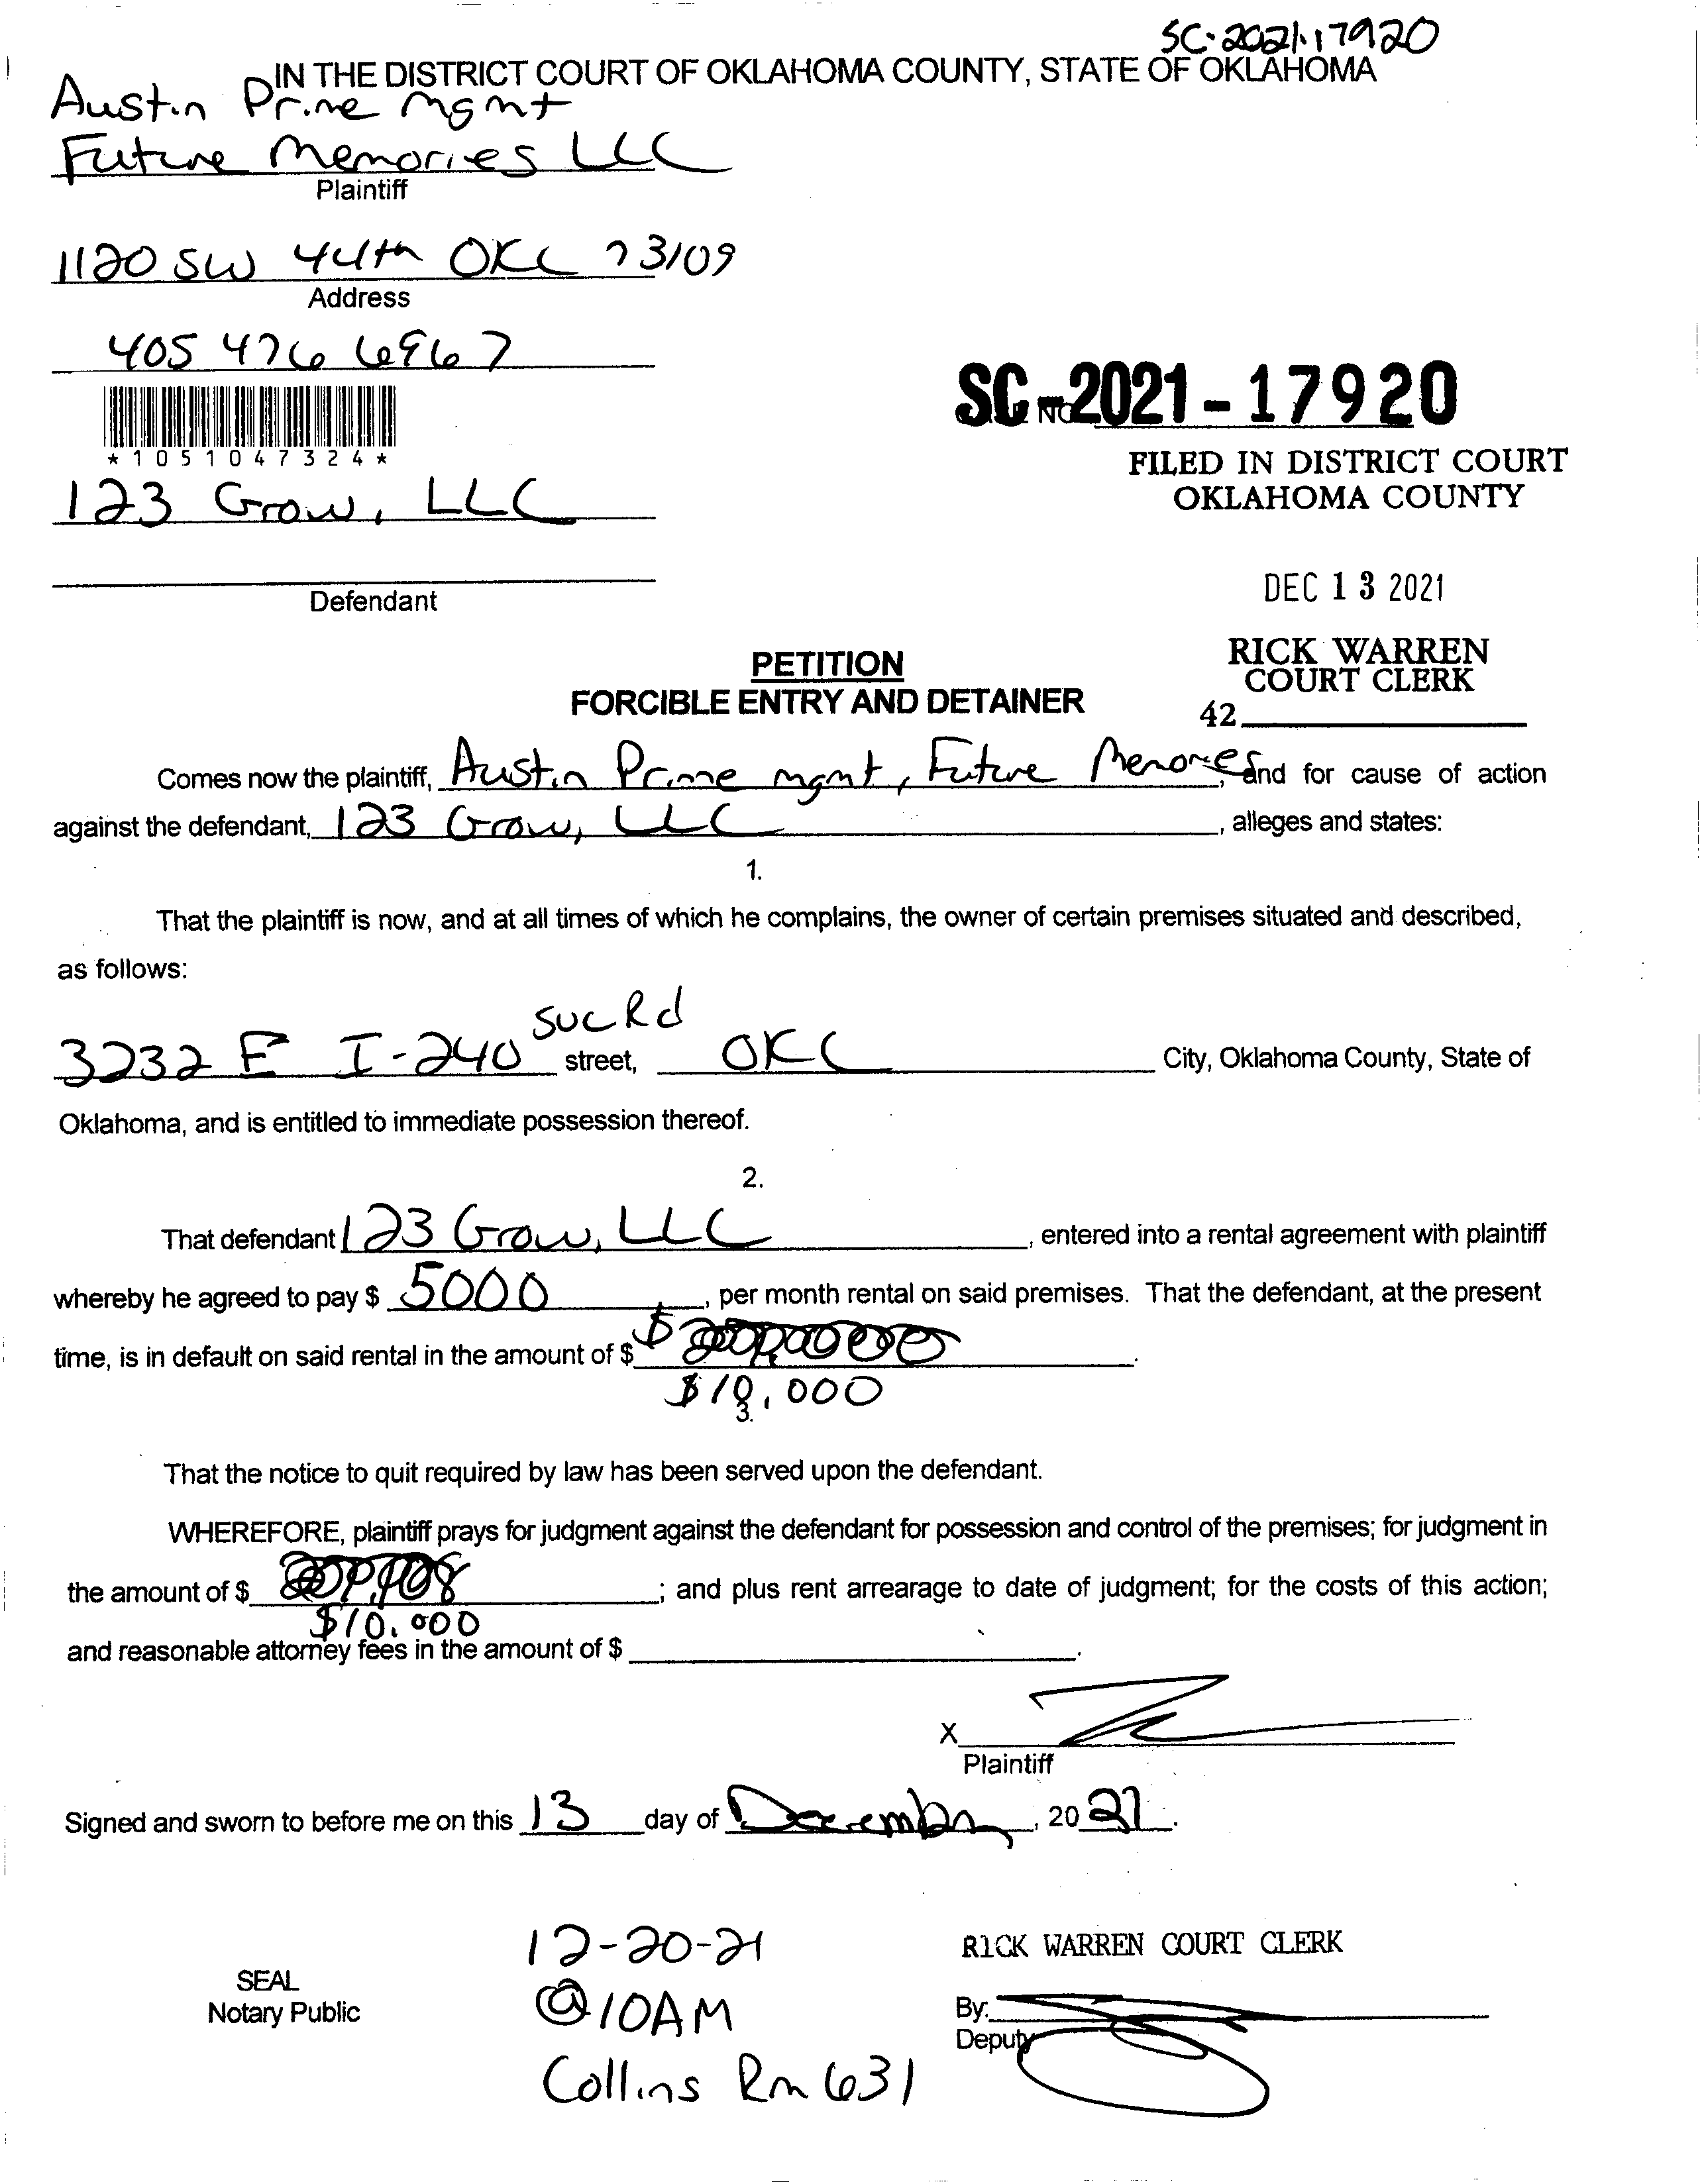 SC-2021-17920
IN THE DISTRICT COURT OF OKLAHOMA COUNTY, STATE OF OKLAHOMA
Austin Prime Mgmt
Future Memories LLC
Plaintiff
1120 SW 44th OKC 73109
Address
405 476 6967
*1051047324*
SC-2021-17920
NO.
FILED IN DISTRICT COURT
OKLAHOMA COUNTY
123 Grow, LLC
DEC 13 2021
Defendant
RICK WARREN
COURT CLERK
42
PETITION
FORCIBLE ENTRY AND DETAINER
Comes now the plaintiff, Austin Prime mgmt, Future Memories, and for cause of action
against the defendant, 123 Grow, LLC, alleges and states:
1.
That the plaintiff is now, and at all times of which he complains, the owner of certain premises situated and described,
as follows:
3232 E I-240 SvcRd street, OKC City, Oklahoma County, State of
Oklahoma, and is entitled to immediate possession thereof.
2.
That defendant 123 Grow, LLC, entered into a rental agreement with plaintiff
whereby he agreed to pay $ 5000, per month rental on said premises. That the defendant, at the present
time, is in default on said rental in the amount of $ $
$10,000
3.
That the notice to quit required by law has been served upon the defendant.
WHEREFORE, plaintiff prays for judgment against the defendant for possession and control of the premises; for judgment in
the amount of $ ; and plus rent arrearage to date of judgment; for the costs of this action;
$10,000
and reasonable attorney fees in the amount of $ .
X
Plaintiff
Signed and sworn to before me on this 13 day of December, 20 21.
12-20-21
@10AM
Collins Rm 631
SEAL
Notary Public
RICK WARREN COURT CLERK
By:
Deputy